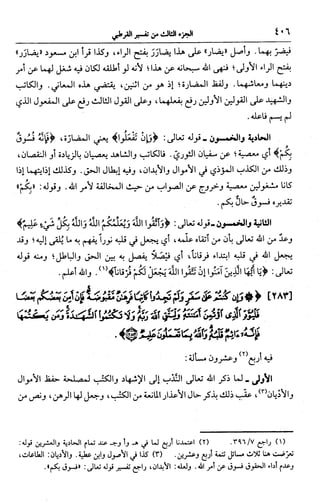 ٤٠٦ الجزء الثالث من تفسير القرطبي
فيضرّ بهما. وأصل «يضار» على هذا يضارَرْ بفتح الراء، وكذا قرأ ابن مسعود «يضارر»
بفتح الراء الأولى؛ فنهى الله سبحانه عن هذا؛ لأنه لو أطلقه لكان فيه شغل لهما عن أمر
دينهما ومعاشهما. ولفظ المضارة؛ إذ هو من اثنين، يقتضي هذه المعاني. والكاتب
والشهيد على القولين الأولين رفع بفعلهما، وعلى القول الثالث رفع على المفعول الذي
لم يسم فاعله.
الحادية والخمسون - قوله تعالى: ﴿وَإِنْ تَفْعَلُوا﴾ يعني المضارة، ﴿فَإِنَّهُ فُسُوقٌ
بِكُمْ﴾ أي معصية؛ عن سفيان الثوري. فالكاتب والشاهد يعصيان بالزيادة أو النقصان،
وذلك من الكذب المؤذي في الأموال والأبدان، وفيه إبطال الحق. وكذلك إذايتهما إذا
كانا مشغولين معصية وخروج عن الصواب من حيث المخالفة لأمر الله. وقوله: «بِكُمْ»
تقديره فسوق حالٌّ بكم.
الثانية والخمسون - قوله تعالى: ﴿وَاتَّقُوا اللَّهَ وَيُعَلِّمُكُمُ اللَّهُ وَاللَّهُ بِكُلِّ شَيْءٍ عَلِيمٌ﴾
وعدٌ من الله تعالى بأن من اتقاه علّمه، أي يجعل في قلبه نوراً يفهم به ما يُلقى إليه؛ وقد
يجعل الله في قلبه ابتداء فرقاناً، أي فيصلاً يفصل به بين الحق والباطل؛ ومنه قوله
تعالى: ﴿يَا أَيُّهَا الَّذِينَ آمَنُوا إِنْ تَتَّقُوا اللَّهَ يَجْعَلْ لَكُمْ فُرْقَاناً﴾(١). والله أعلم.
[٢٨٣] ﴿۞ وَإِن كُنتُمْ عَلَىٰ سَفَرٍ وَلَمْ تَجِدُوا كَاتِبًا فَرِهَانٌ مَّقْبُوضَةٌ فَإِنْ أَمِنَ بَعْضُكُم بَعْضًا
فَلْيُؤَدِّ الَّذِي اؤْتُمِنَ أَمَانَتَهُ وَلْيَتَّقِ اللَّهَ رَبَّهُ وَلَا تَكْتُمُوا الشَّهَادَةَ وَمَن يَكْتُمْهَا
فَإِنَّهُ آثِمٌ قَلْبُهُ وَاللَّهُ بِمَا تَعْمَلُونَ عَلِيمٌ﴾.
فيه أربع(٢) وعشرون مسألة:
الأولى - لما ذكر الله تعالى النّدب إلى الإشهاد والكَتْب لمصلحة حفظ الأموال
والأديان(٣)، عقّب ذلك بذكر حال الأعذار المانعة من الكَتْب، وجعل لها الرهن، ونص من
(١) راجع ٣٩٦/٧. (٢) اعتمدنا أربع لما في هـ وأ وجـ عند تمام الحادية والعشرين قوله:
تعرّضت هنا ثلاث مسائل تتمة أربع وعشرين. (٣) كذا في الأصول وابن عطية. والأديان: الطاعات،
وعدم أداء الحقوق فسوق عن أمر الله. ولعله: الأبدان، راجع تفسير قوله تعالى: «فسوق بكم».